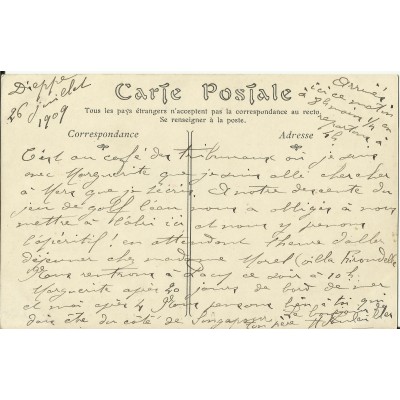 Dieppe
26 juillet
1909
Arrivés
ici ce matin
à 8h moins 1/4 en
repartons à
4h
Carte Postale
Tous les pays étrangers n'acceptent pas la correspondance au recto.
Se renseigner à la poste.
Correspondance
Adresse
C'est au café des Tribunaux où je suis
avec Marguerite que je suis allé chercher
à Mers que je t'écris. A notre descente du
jeu de golf l'eau nous a obligés à nous
mettre à l'abri ici et nous y prenons
l'apéritif en attendant l'heure d'aller
déjeuner chez madame Morel (villa Hirondelle)
Nous rentrons à ce soir à 10h.
Marguerite après 20 jours de bord de mer
et moi après 4 Nous pensons bien à toi qui
dois être du côté de Singapour
Ton père